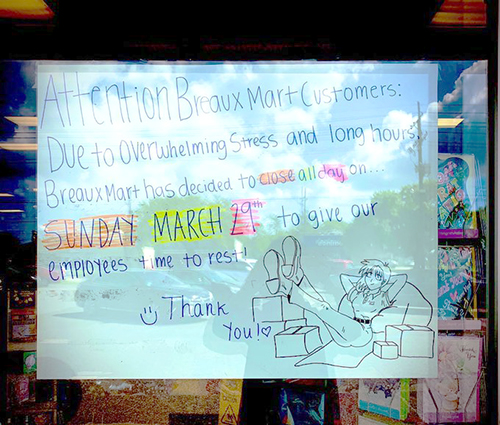 Attention Breaux Mart Customers:
Due to Overwhelming Stress and long hours,
Breaux Mart has decided to close all day on...
SUNDAY MARCH 29th to give our
employees time to rest!
☺ Thank
You! ♡